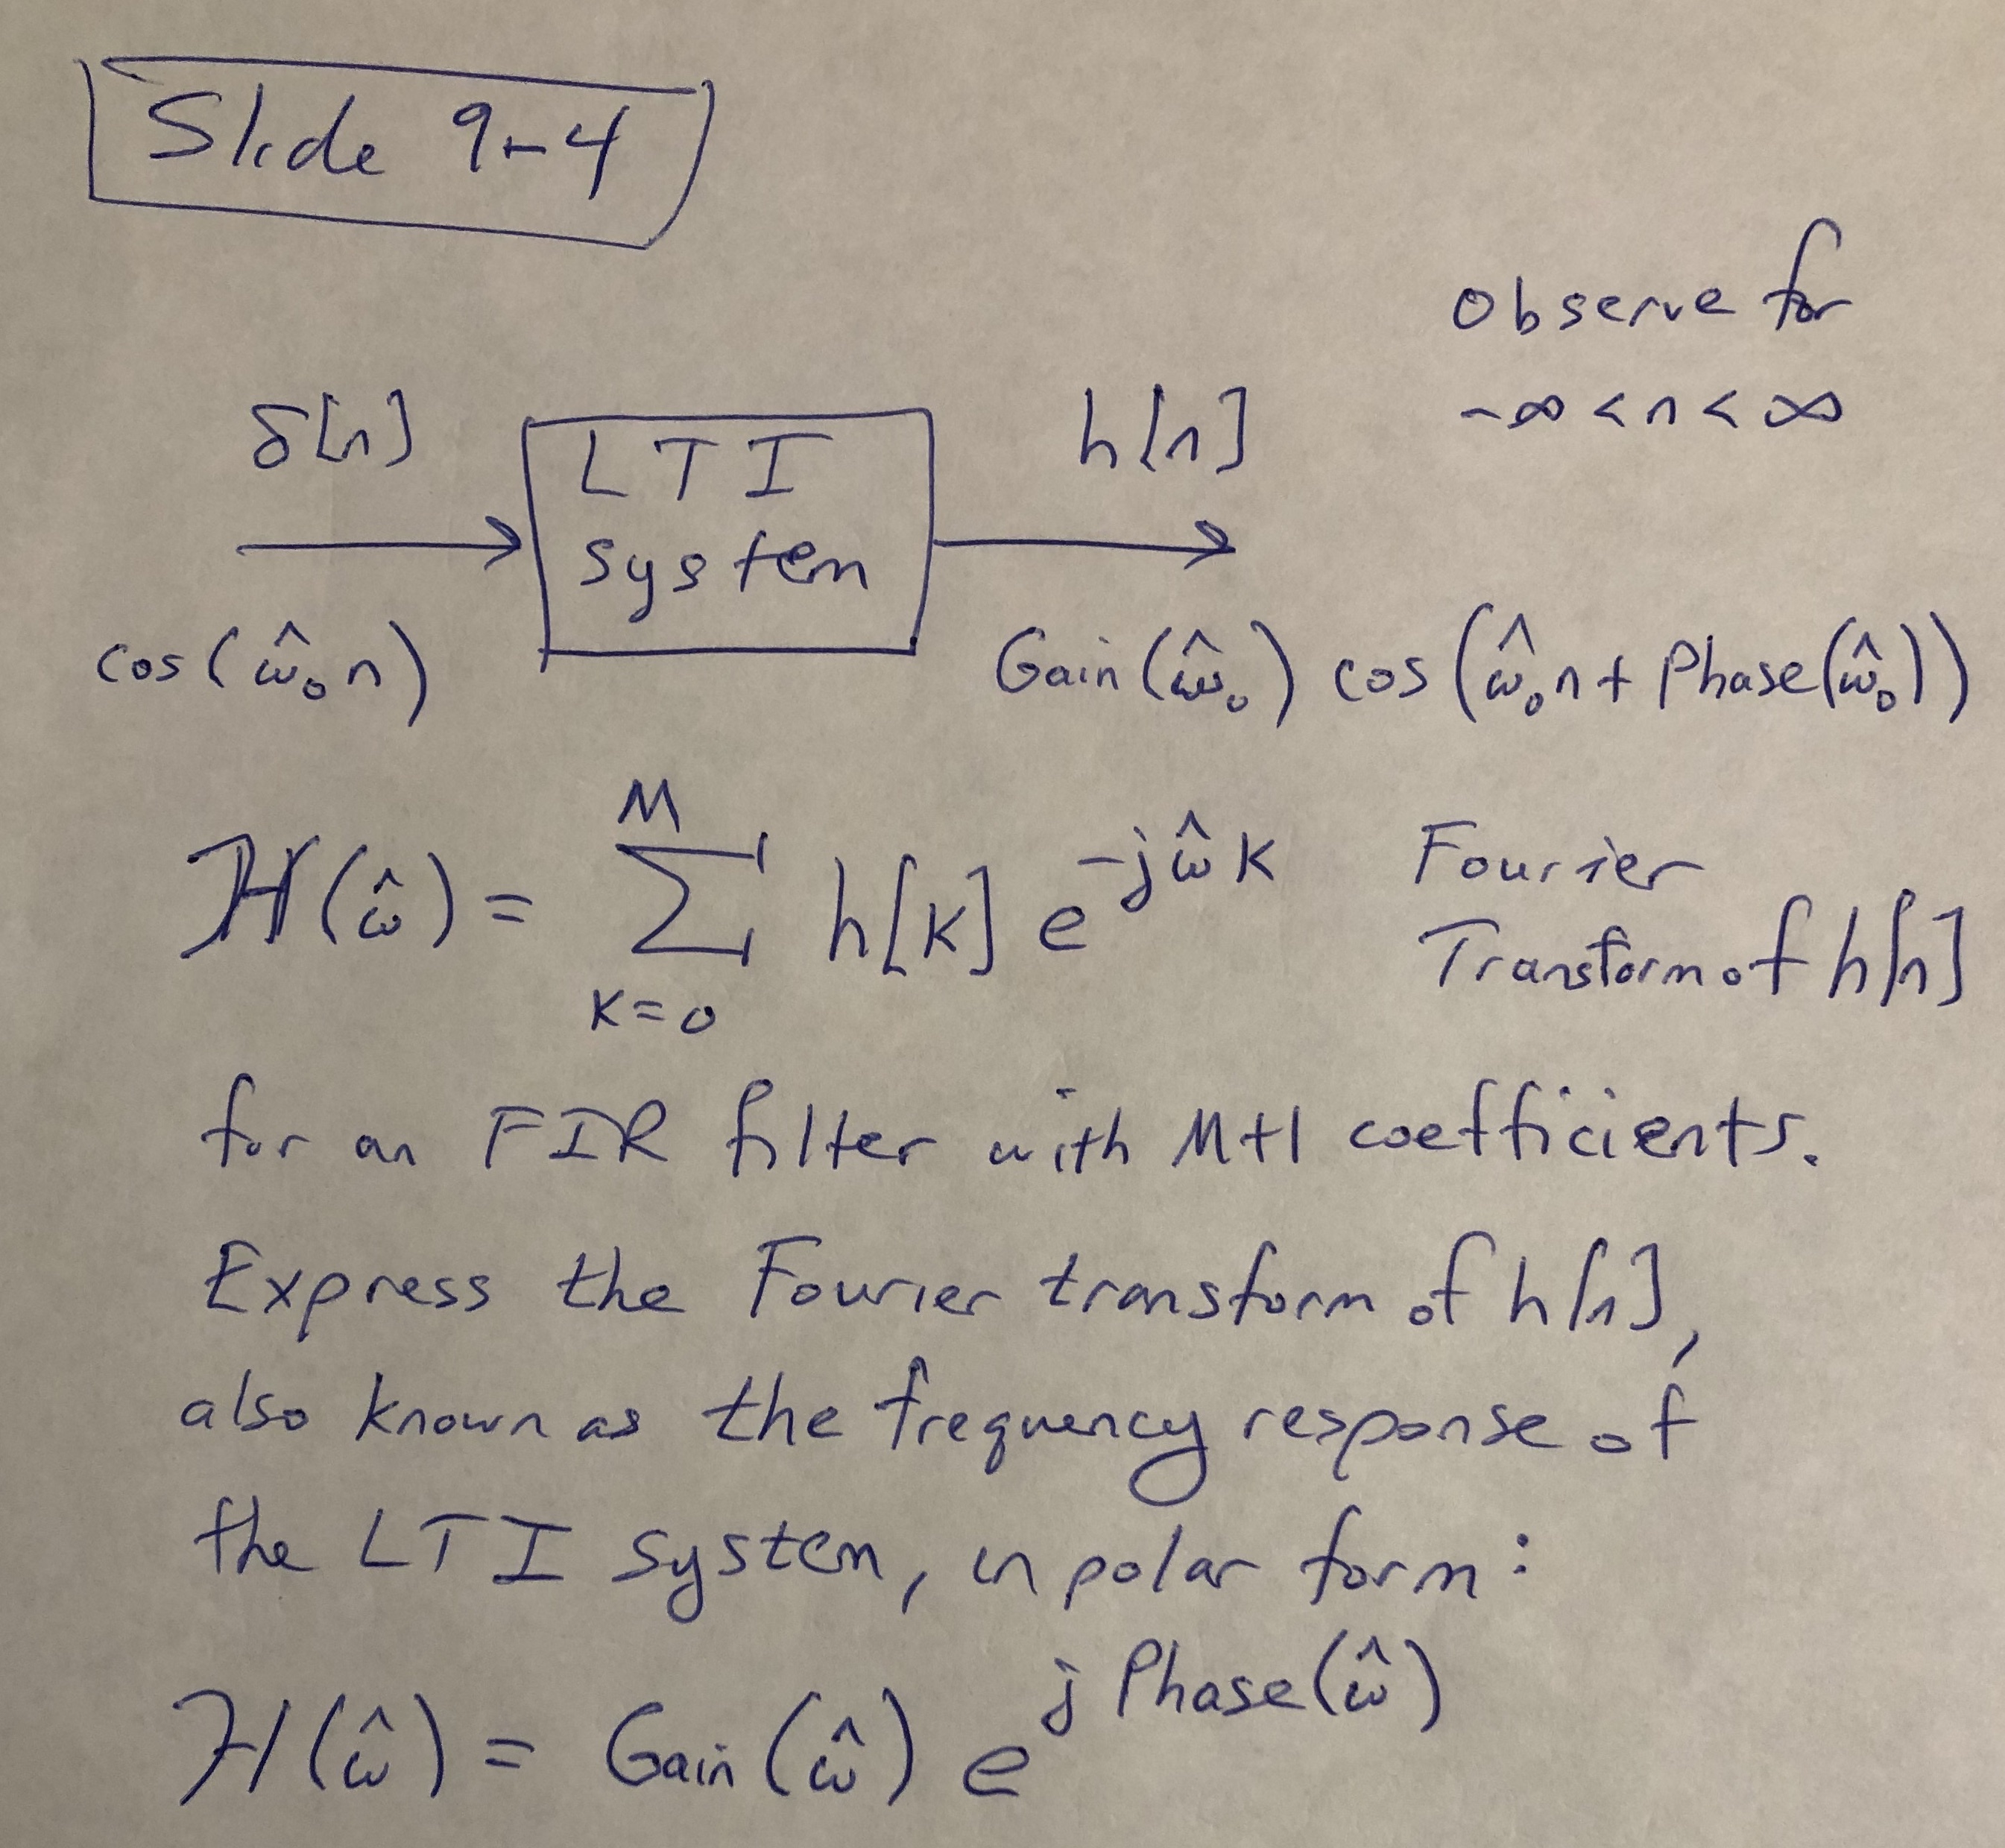 Slide 9-4
Observe for
-∞ < n < ∞
δ[n]
LTI
system
h[n]
cos(ω̂₀n)
Gain(ω̂₀) cos(ω̂₀n + Phase(ω̂₀))
H(ω̂) = ∑_{k=0}^{M} h[k] e^{-jω̂k}
Fourier
Transform of h[n]
for an FIR filter with M+1 coefficients.
Express the Fourier transform of h[n],
also known as the frequency response of
the LTI system, in polar form:
H(ω̂) = Gain(ω̂) e^{j Phase(ω̂)}